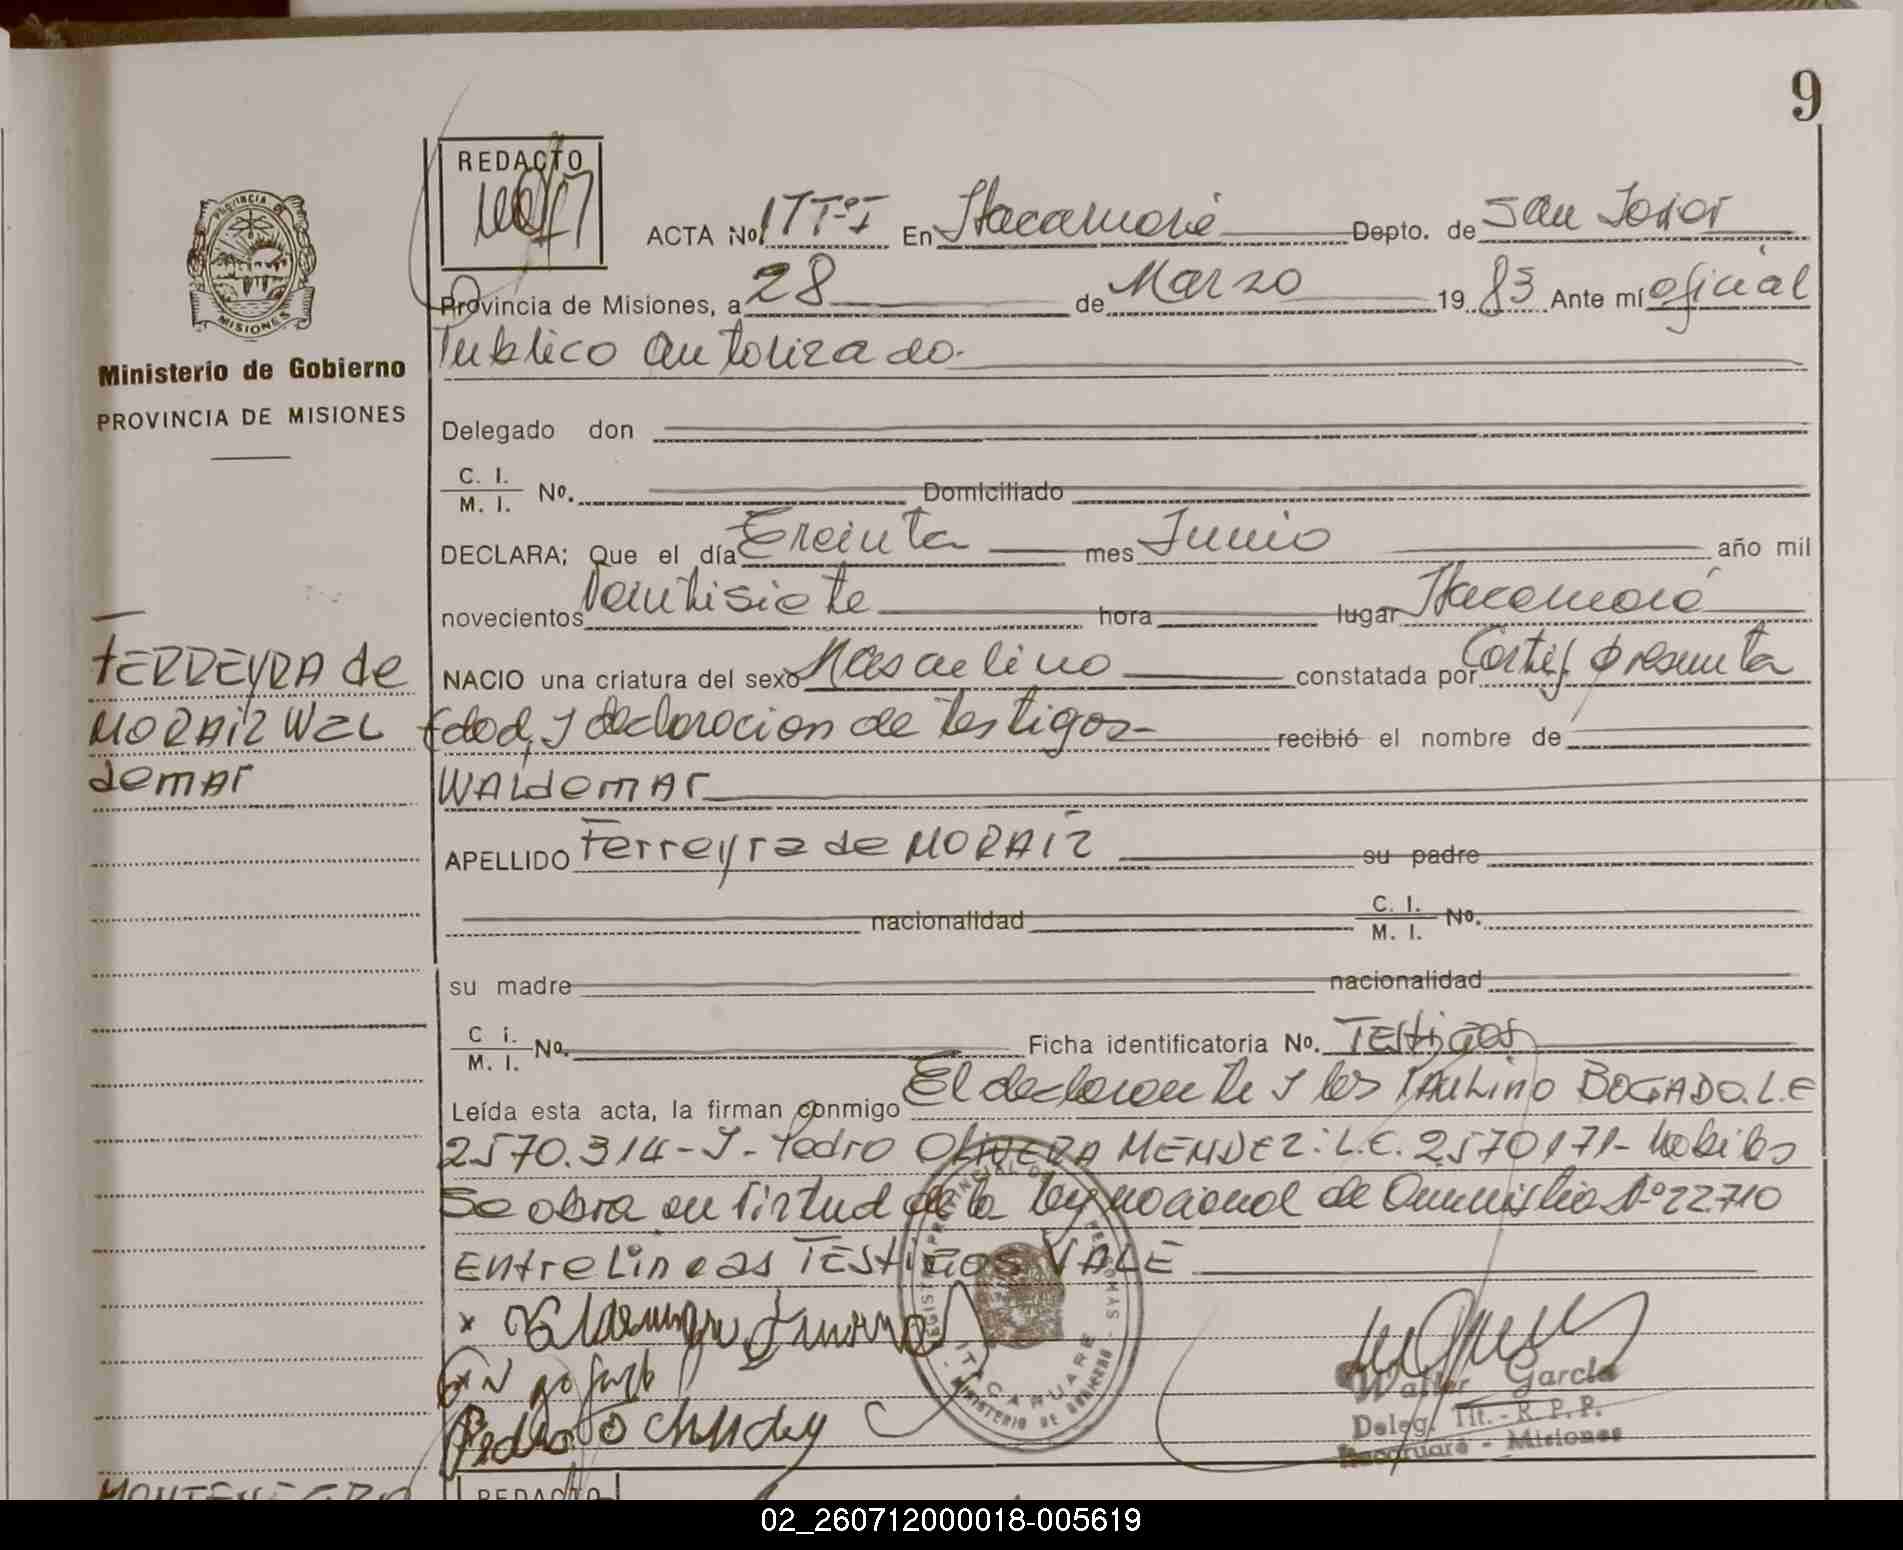 9
REDACTO
ACTA No. 17 T°I En Itacaruaré Depto. de San Javier
Provincia de Misiones, a 28 de Marzo 1983 Ante mí oficial
Publico autorizado.
PROVINCIA DE
MISIONES
Ministerio de Gobierno
PROVINCIA DE MISIONES
Delegado don
C. I.
M. I. No. Domiciliado
DECLARA; Que el día Treinta mes Junio año mil
novecientos veintisiete hora lugar Itacaruaré
NACIO una criatura del sexo Masculino constatada por Certif. presunta
Edad, y declaracion de testigos- recibió el nombre de
WALdemAr
FERREYRA de
MORAIZ WAL
demAr
APELLIDO Ferreyra de MORAIZ su padre
nacionalidad C. I.
M. I. No.
su madre nacionalidad
C I.
M. I. No. Ficha identificatoria No. TEStigos
Leída esta acta, la firman conmigo El declarante y los PAULINO BOGADO. L.E
2570.314 - y - Pedro OLIVERA MENDEZ: L.E. 2570171- habiles
Se obra en virtud de la ley nacional de Amnistia N° 22710
EntreLineas TEStigos VALE
ITACARUARE
MINISTERIO DE GOBIERNO
Walter García
Deleg. Tit. - R. P. P.
Itacaruaré - Misiones
MONTENEGRO
REDACTO
02_260712000018-005619